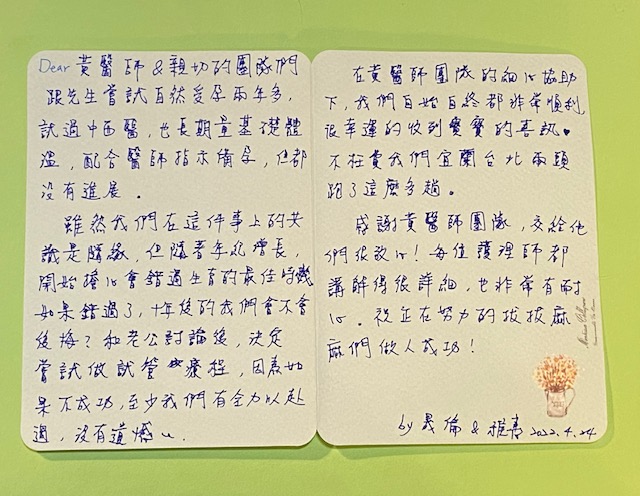 Dear 黃醫師 & 親切的團隊們
跟先生嘗試自然受孕兩年多,
試過中西醫, 也長期量基礎體
溫, 配合醫師指示備孕, 但都
沒有進展.
雖然我們在這件事上的共
識是隨緣, 但隨著年紀增長,
開始擔心會錯過生育的最佳時幾
如果錯過了, 十年後的我們會不會
後悔? 和老公討論後, 決定
嘗試做試管療程, 因為如
果不成功, 至少我們有全力以赴
過, 沒有遺憾
在黃醫師團隊的細心協助
下, 我們自始自終都非常順利
很幸運的收到寶寶的喜訊♥
不枉費我們宜蘭台北兩頭
跑了這麼多趟。
感謝黃醫師團隊, 交給他
們很放心! 每位護理師都
講解得很詳細, 也非常有耐
心. 祝正在努力的拔拔麻
麻們做人成功!
by 晟倫 & 雅 2022.4.24